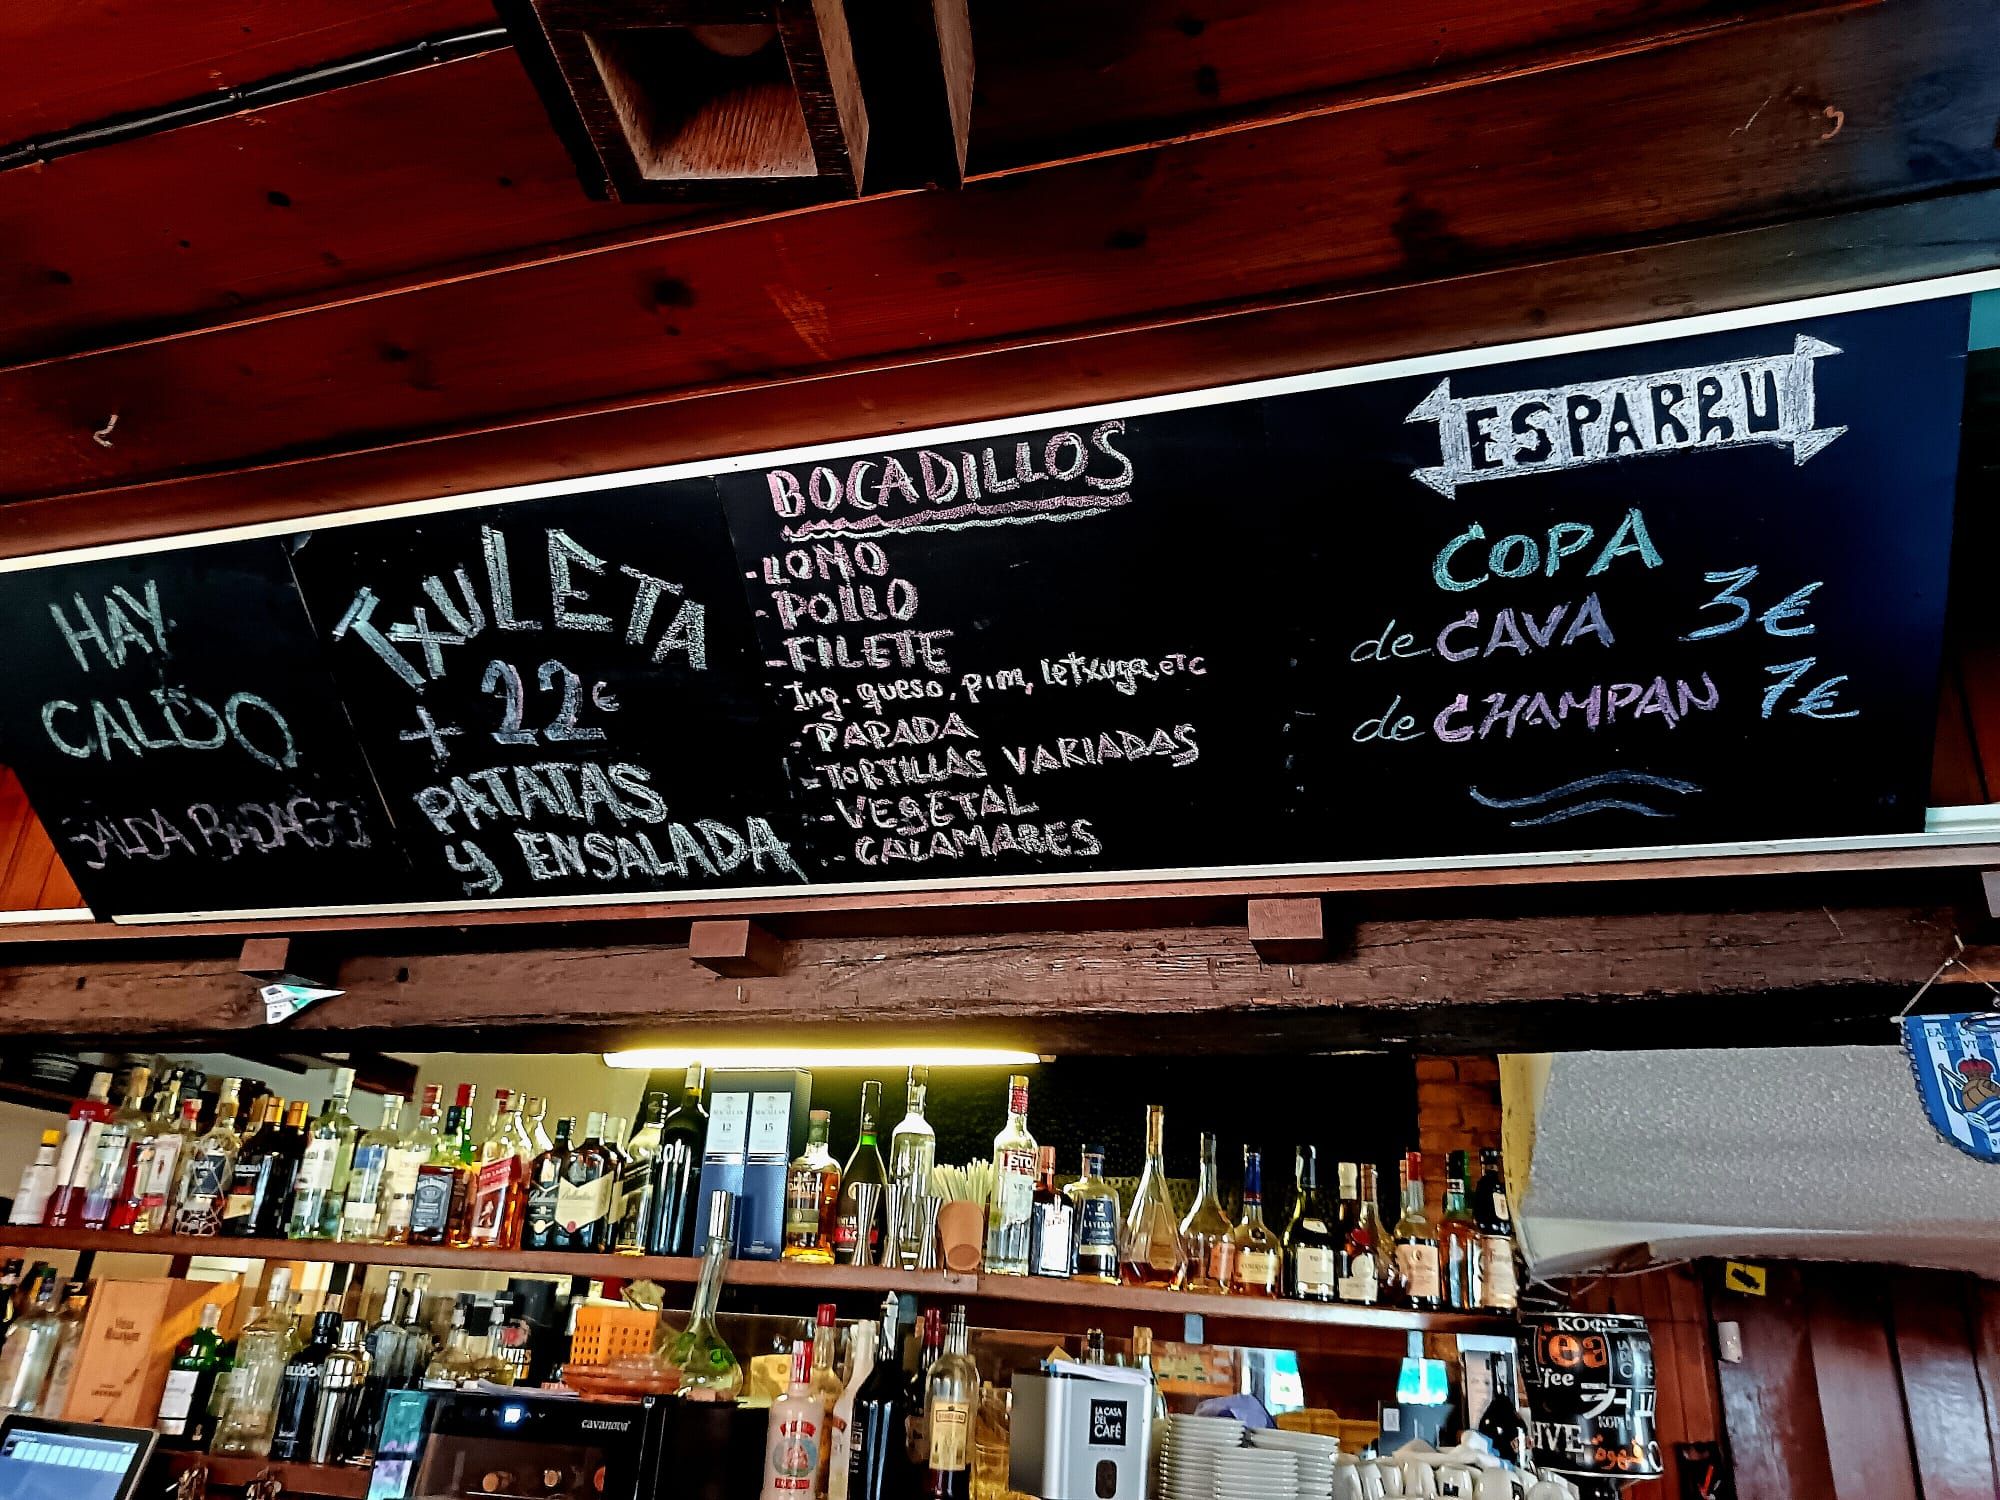 HAY
CALDO
SALDA BADAGO
TXULETA
+ 22€
PATATAS
y ENSALADA
BOCADILLOS
- LOMO
- POLLO
- FILETE
Ing. queso, pim, letxuga, etc
- PAPADA
- TORTILLAS VARIADAS
- VEGETAL
- CALAMARES
ESPARRU
COPA
de CAVA 3€
de CHAMPAN 7€
MACALLAN
12
MACALLAN
15
cavanova
LA CASA
DEL
CAFÉ
tea